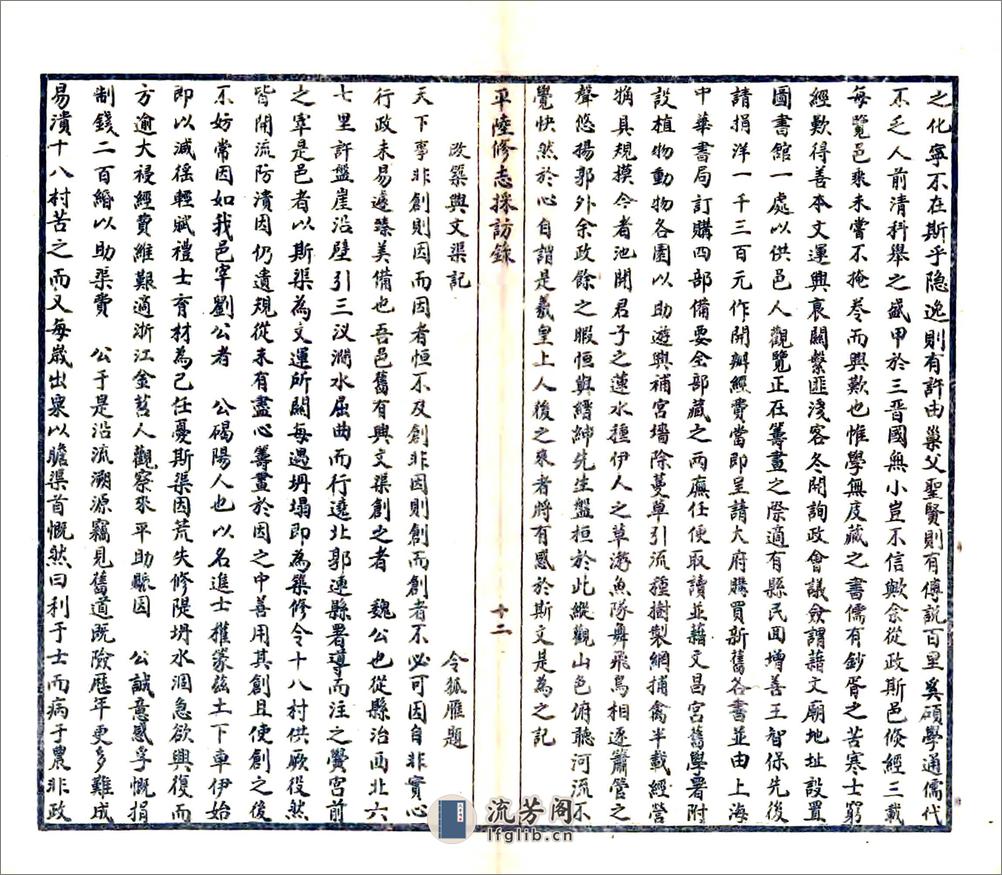 之化寧不在斯乎隐逸則有許由巢父聖賢則有傅説百里奚碩學通儒代
不乏人前清科舉之盛甲於三晋國無小豈不信歟余從政斯邑倐經三載
每覽邑乘未嘗不掩卷而興歎也惟學無庋藏之書儒有鈔胥之苦寒士窮
經歎得善本文運興衰關繫匪淺客冬開詢政會議僉謂藉文廟地址設置
圖書館一處以供邑人觀覽正在籌畫之際適有縣民囬增善王智保先後
請捐洋一千三百元作開辦經費當即呈請大府購買新舊各書並由上海
中華書局訂購四部備要全部藏之兩廡任便取讀並藉文昌宮舊學署附
設植物動物各園以助遊興補宮墻除蔓草引流種樹製網捕禽半載經營
觕具規摸今者池開君子之蓮水種伊人之草游魚隊舞飛鳥相逐簫管之
聲悠揚郭外余政餘之暇恒與縉紳先生盤桓於此縱觀山色俯聽河流不
覺快然於心自謂是羲皇上人後之來者將有感於斯文是為之記
平陸修志採訪錄
十二
改築興文渠記
令狐雁題
天下事非創則因而因者恒不及創非因則創而創者不必可因自非實心
行政未易遽臻美備也吾邑舊有興文渠創之者 魏公也從縣治西北六
七里許盤崖沿壁引三汊澗水屈曲而行遶北郭連縣署導而注之黌宮前
之宰是邑者以斯渠為文運所關每遇坍塌即為築修令十八村供厥役然
皆開流防潰因仍遺規從未有盡心籌畫於因之中善用其創且使創之後
不妨常因如我邑宰劉公者 公碭陽人也以名進士獲篆兹土下車伊始
即以減徭輕賦禮士育材為己任憂斯渠因荒失修隄坍水涸急欲興復而
方逾大祲經費維艱適浙江金苕人觀察來平助賑因 公誠意感孚慨捐
制錢二百緡以助渠費 公于是沿流溯源竊見舊道既險歷年更多難成
易潰十八村苦之而又每歲出粟以贍渠首慨然曰利于士而病于農非政
流芳阁
lfglib.cn